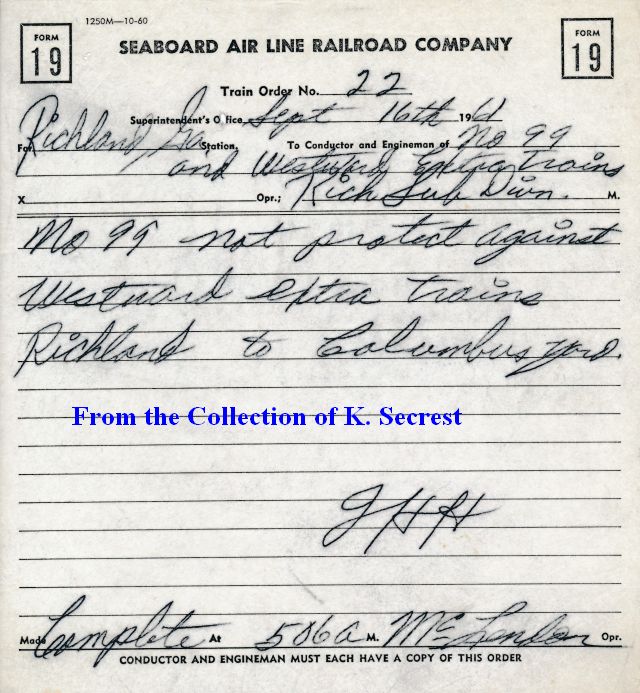 1250M—10-60
FORM 19
SEABOARD AIR LINE RAILROAD COMPANY
FORM 19
Train Order No. 22
Superintendent's Office, Sept 16th 1961
For Richland, Ga Station. To Conductor and Engineman of No 99
and Westward Extra Trains
X Opr.; Rich Sub Divn. M.
No 99 not protect against
Westward extra trains
Richland to Columbus yard.
From the Collection of K. Secrest
JHH
Made Complete At 506 A M. McLendon Opr.
CONDUCTOR AND ENGINEMAN MUST EACH HAVE A COPY OF THIS ORDER